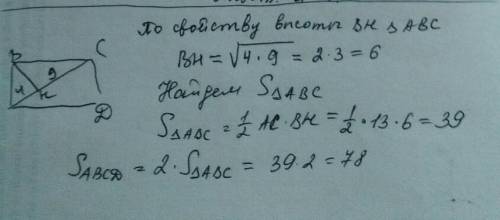 По свойству высоты BH ΔABC
BH = √4·9 = 2·3 = 6
Найдем SΔABC
SΔABC = 1/2 AC·BH = 1/2·13·6 = 39
SABCD = 2·SΔABC = 39·2 = 78
B C
9
4 H
D